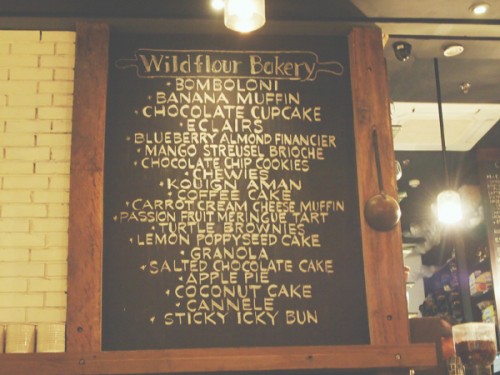 Wildflour Bakery
BOMBOLONI
BANANA MUFFIN
CHOCOLATE CUPCAKE
ECLAIRS
BLUEBERRY ALMOND FINANCIER
MANGO STREUSEL BRIOCHE
CHOCOLATE CHIP COOKIES
CHEWIES
KOUIGN AMAN
COFFEE CAKE
CARROT CREAM CHEESE MUFFIN
PASSION FRUIT MERINGUE TART
TURTLE BROWNIES
LEMON POPPYSEED CAKE
GRANOLA
SALTED CHOCOLATE CAKE
APPLE PIE
COCONUT CAKE
CANNELE
STICKY ICKY BUN